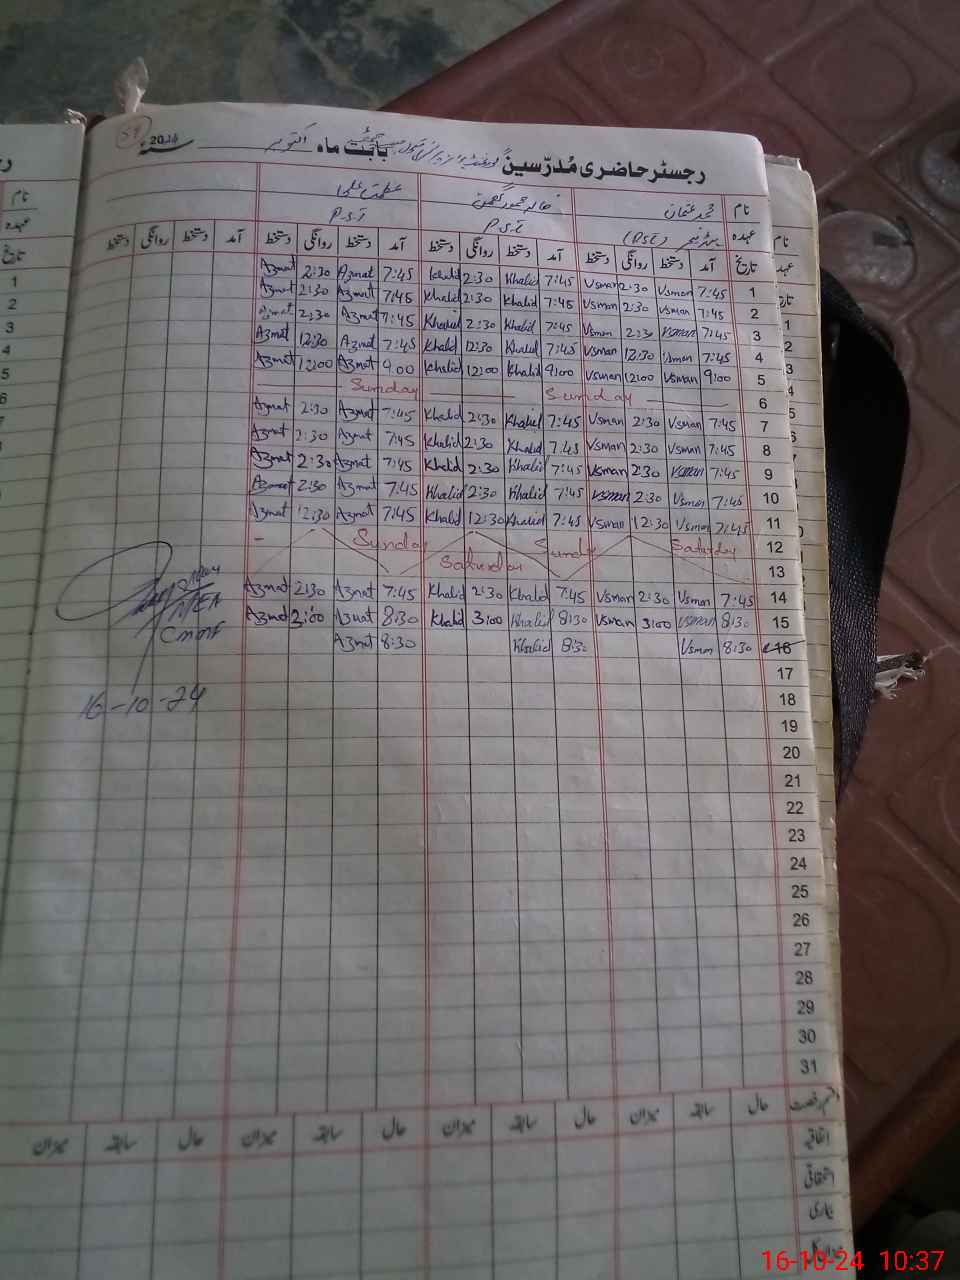 59
رجسٹر حاضری مُدرّسین بابت ماہ اکتوبر 2024
نام محمد عثمان خالد محمود گھمن عظمت علی
عہدہ ہیڈ ٹیچر (PST) P.S.T P.S.T
تاریخ آمد دستخط روانگی دستخط آمد دستخط روانگی دستخط آمد دستخط روانگی دستخط آمد دستخط روانگی دستخط
Azmat 2:30 Azmat 7:45 Khalid 2:30 Khalid 7:45 Usman 2:30 Usman 7:45 1
Azmat 2:30 Azmat 7:45 Khalid 2:30 Khalid 7:45 Usman 2:30 Usman 7:45 2
Azmat 2:30 Azmat 7:45 Khalid 2:30 Khalid 7:45 Usman 2:30 Usman 7:45 3
Azmat 12:30 Azmat 7:45 Khalid 12:30 Khalid 7:45 Usman 12:30 Usman 7:45 4
Azmat 12:00 Azmat 9:00 Khalid 12:00 Khalid 9:00 Usman 12:00 Usman 9:00 5
Sunday Sunday 6
Azmat 2:30 Azmat 7:45 Khalid 2:30 Khalid 7:45 Usman 2:30 Usman 7:45 7
Azmat 2:30 Azmat 7:45 Khalid 2:30 Khalid 7:45 Usman 2:30 Usman 7:45 8
Azmat 2:30 Azmat 7:45 Khalid 2:30 Khalid 7:45 Usman 2:30 Usman 7:45 9
Azmat 2:30 Azmat 7:45 Khalid 2:30 Khalid 7:45 Usman 2:30 Usman 7:45 10
Azmat 12:30 Azmat 7:45 Khalid 12:30 Khalid 7:45 Usman 12:30 Usman 7:45 11
Sunday Sunday Saturday 12
Saturday 13
Azmat 2:30 Azmat 7:45 Khalid 2:30 Khalid 7:45 Usman 2:30 Usman 7:45 14
Azmat 3:00 Azmat 8:30 Khalid 3:00 Khalid 8:30 Usman 3:00 Usman 8:30 15
Azmat 8:30 Khalid 8:30 Usman 8:30 16
MEA
16-10-24
17
18
19
20
21
22
23
24
25
26
27
28
29
30
31
حال سابقہ میزان حال سابقہ میزان حال سابقہ میزان
اتفاقیہ
استحقاقی
بیماری
16-10-24 10:37